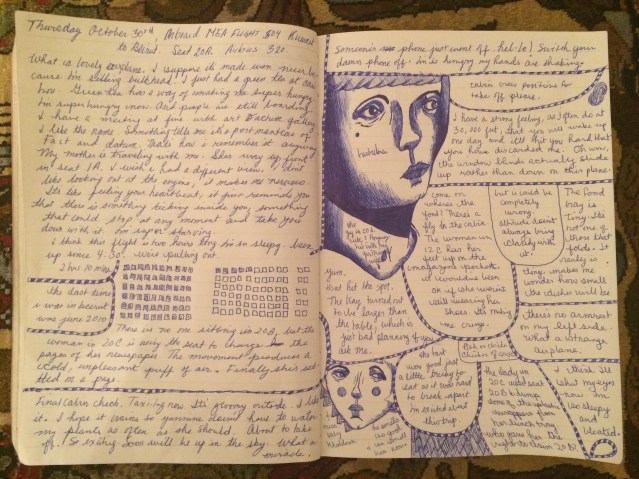 Thursday October 30th, Onboard MEA FLIGHT 404 Kuwait
to Beirut. Seat 20A. Airbus 320.
What a lovely airplane. I suppose its made even nicer be
cause I'm sitting bulkhead. I just had a green tea at
Green tea has a way of making me super hungry
I'm super hungry now. And people are still boarding.
I have a meeting at five with art Factum gallery
I like the name. Something tells me its a portmanteau of
fact and datum. Thats how i remember it anyway
My mother is traveling with me. Shes way up front
in seat 1A. I wish i had a different view. I dont
like looking out at the engine, it makes me nervous.
Its like feeling your heartbeat, it just reminds you
that there is something ticking inside you, something
that could stop at any moment and take you
down with it. I'm super starving.
I think this flight is two hours long. I'm so sleepy. been
up since 4:30. were pulling out.
2 hrs 10 mins
the last time
i was in beirut
was june 2010
There is no one sitting in 20B, but the
woman in 20C is using the seat to change the
pages of her newspaper. The movement produces a
cold, unpleasant puff of air. Finally she's set
tled on a page.
Final cabin check. Taxiing now. Its gloomy outside. I like
it. I hope it rains so
my plants as often as she should. About to take
off. So exciting. Soon will be up in the sky. What a
miracle.
Someone's phone just went off hel-lo! Switch your
damn phone off. im so hungry my hands are shaking.
cabin crew positions for
take off please.
I have a strong feeling, as I often do at
30,000 feet, that you will wake up
one day and it'll hit you hard that
you have discarded me. Oh wow,
the window blinds actually slide
up rather than down on this plane.
come on
wheres the
food? There's a
fly in the cabin
The woman in
12C has her
feet up on the
magazine pockets.
it would've been
fine if she were
still wearing her
shoes. its making
me cringe.
but i could be
completely
wrong.
altitude doesnt
always bring
clarity with
it.
The food
tray is
tiny. Its
not one of
those that
folds. It
really is
tiny. makes me
wonder how small
the dishes will be
Yum.
that hit the spot.
The tray turned out
to be larger than
the table, which is
just bad planning if you
ask me.
there's no armrest
on my left side.
What a strange
airplane.
the tart
was good just
a little tricky to
eat as it was hard
to break apart
im excited about
this trip
the lady in
20C used seat
20B to dump
her lunch tray.
who gave her the
right to claim 20B?
I think Ill
shut my eyes
now. im
so sleepy
and
bloated.